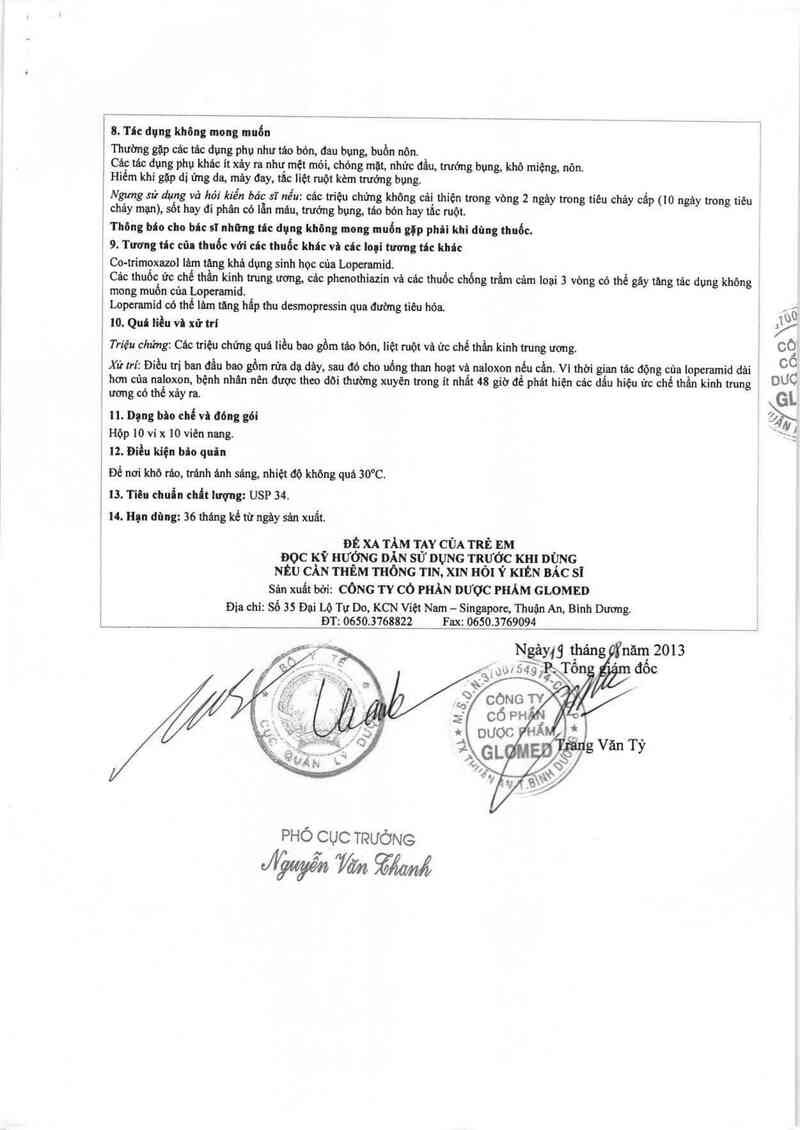 8. Tác dụng không mong muốn
Thường gặp các tác dụng phụ như táo bón, đau bụng, buồn nôn.
Các tác dụng phụ khác ít xảy ra như mệt mỏi, chóng mặt, nhức đầu, trướng bụng, khô miệng, nôn.
Hiếm khi gặp dị ứng da, mày đay, tắc liệt ruột kèm trướng bụng.
Ngưng sử dụng và hỏi kiến bác sĩ nếu: các triệu chứng không cải thiện trong vòng 2 ngày trong tiêu chảy cấp (10 ngày trong tiêu
chảy mạn), sốt hay đi phân có lẫn máu, trướng bụng, táo bón hay tắc ruột.
Thông báo cho bác sĩ những tác dụng không mong muốn gặp phải khi dùng thuốc.
9. Tương tác của thuốc với các thuốc khác và các loại tương tác khác
Co-trimoxazol làm tăng khả dụng sinh học của Loperamid.
Các thuốc ức chế thần kinh trung ương, các phenothiazin và các thuốc chống trầm cảm loại 3 vòng có thể gây tăng tác dụng không
mong muốn của Loperamid.
Loperamid có thể làm tăng hấp thu desmopressin qua đường tiêu hóa.
10. Quá liều và xử trí
Triệu chứng: Các triệu chứng quá liều bao gồm táo bón, liệt ruột và ức chế thần kinh trung ương.
Xử trí: Điều trị ban đầu bao gồm rửa dạ dày, sau đó cho uống than hoạt và naloxon nếu cần. Vì thời gian tác động của loperamid dài
hơn của naloxon, bệnh nhân nên được theo dõi thường xuyên trong ít nhất 48 giờ để phát hiện các dấu hiệu ức chế thần kinh trung
ương có thể xảy ra.
11. Dạng bào chế và đóng gói
Hộp 10 vỉ x 10 viên nang.
12. Điều kiện bảo quản
Để nơi khô ráo, tránh ánh sáng, nhiệt độ không quá 30°C.
13. Tiêu chuẩn chất lượng: USP 34.
14. Hạn dùng: 36 tháng kể từ ngày sản xuất.
ĐỂ XA TẦM TAY CỦA TRẺ EM
ĐỌC KỸ HƯỚNG DẪN SỬ DỤNG TRƯỚC KHI DÙNG
NẾU CẦN THÊM THÔNG TIN, XIN HỎI Ý KIẾN BÁC SĨ
Sản xuất bởi: CÔNG TY CỔ PHẦN DƯỢC PHẨM GLOMED
Địa chỉ: Số 35 Đại Lộ Tự Do, KCN Việt Nam – Singapore, Thuận An, Bình Dương.
ĐT: 0650.3768822 Fax: 0650.3769094
Ngày 19 tháng năm 2013
P. Tổng giám đốc
BỘ Y TẾ
CỤC QUẢN LÝ DƯỢC
CÔNG TY
CỔ PHẦN
DƯỢC PHẨM
GLOMED
Trang Văn Tỷ
PHÓ CỤC TRƯỞNG
Nguyễn Văn Thanh